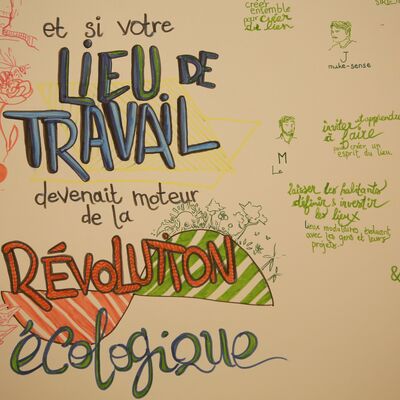 et si votre
LIEU DE
TRAVAIL
devenait moteur
de la
RÉVOLUTION
écologique
créer
ensemble
pour créer
de lien
J
nuke-sense
M
Le
inviter
à faire
esprit du lieu.
laisser les habitants
définir & investir
les lieux
lieux modulaires, évoluant
avec les gens et leurs
projets.
&